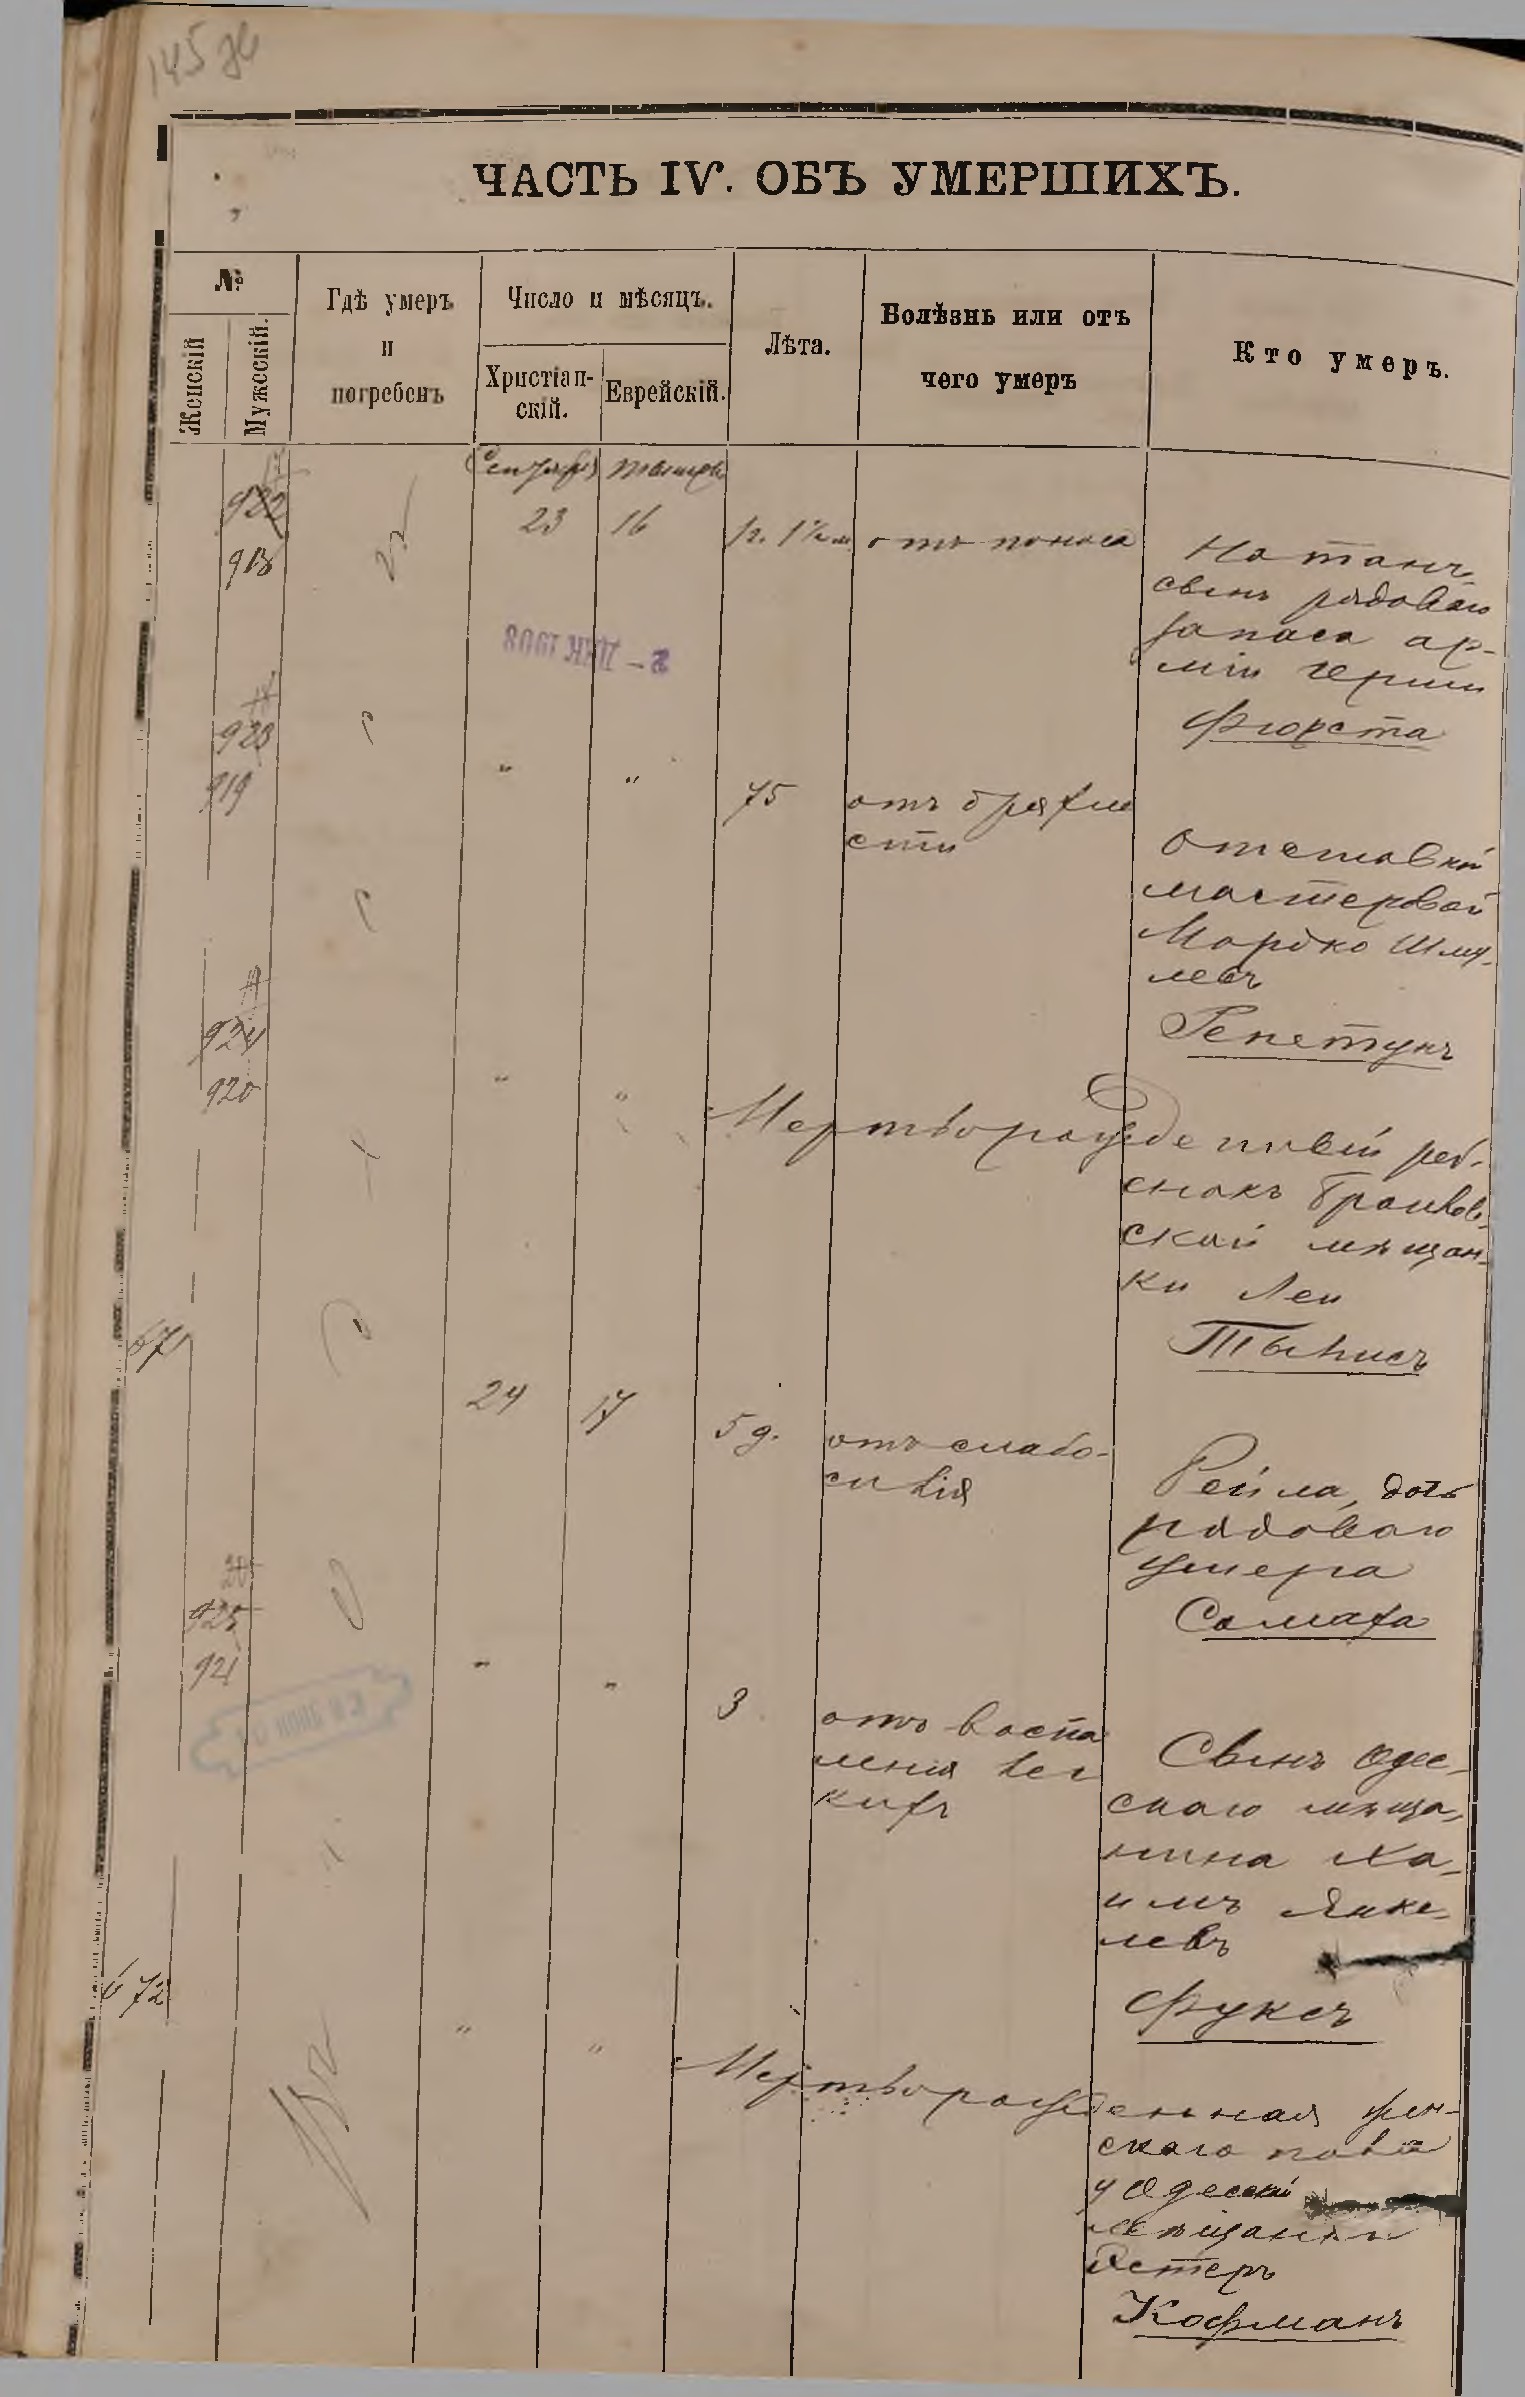 145 об
ЧАСТЬ IV. ОБЪ УМЕРШИХЪ.
№
Женскій
Мужескій.
Гдѣ умеръ
и
погребенъ
Число и мѣсяцъ.
Христіан-
скій.
Еврейскій.
Лѣта.
Болѣзнь или отъ
чего умеръ
Кто умеръ.
Сентября
922
918
23
16
отъ поноса
Натанъ,
сынъ рядоваго
запаса ар-
міи Герши
Фюрста
ДЕК 1908
923
919
"
"
75
отъ дряхло
сти
Отставной
мастеровой
Мордко Шму-
левъ
Репетунъ
924
920
"
"
Мертворожденный реб-
енокъ
ской мѣщан-
ки Леи
24
17
5 д.
отъ слабо-
силія
Рейла, дочь
рядоваго
Самаха
925
921
"
"
3
отъ воспа
ленія лег
кихъ
Сынъ Одес-
скаго мѣща-
нина Ха-
имъ Янке-
левъ
Фуксъ
672
"
"
Мертворожденная жен-
скаго пола
у Одесской
мѣщанки
Эстеръ
Кофманъ